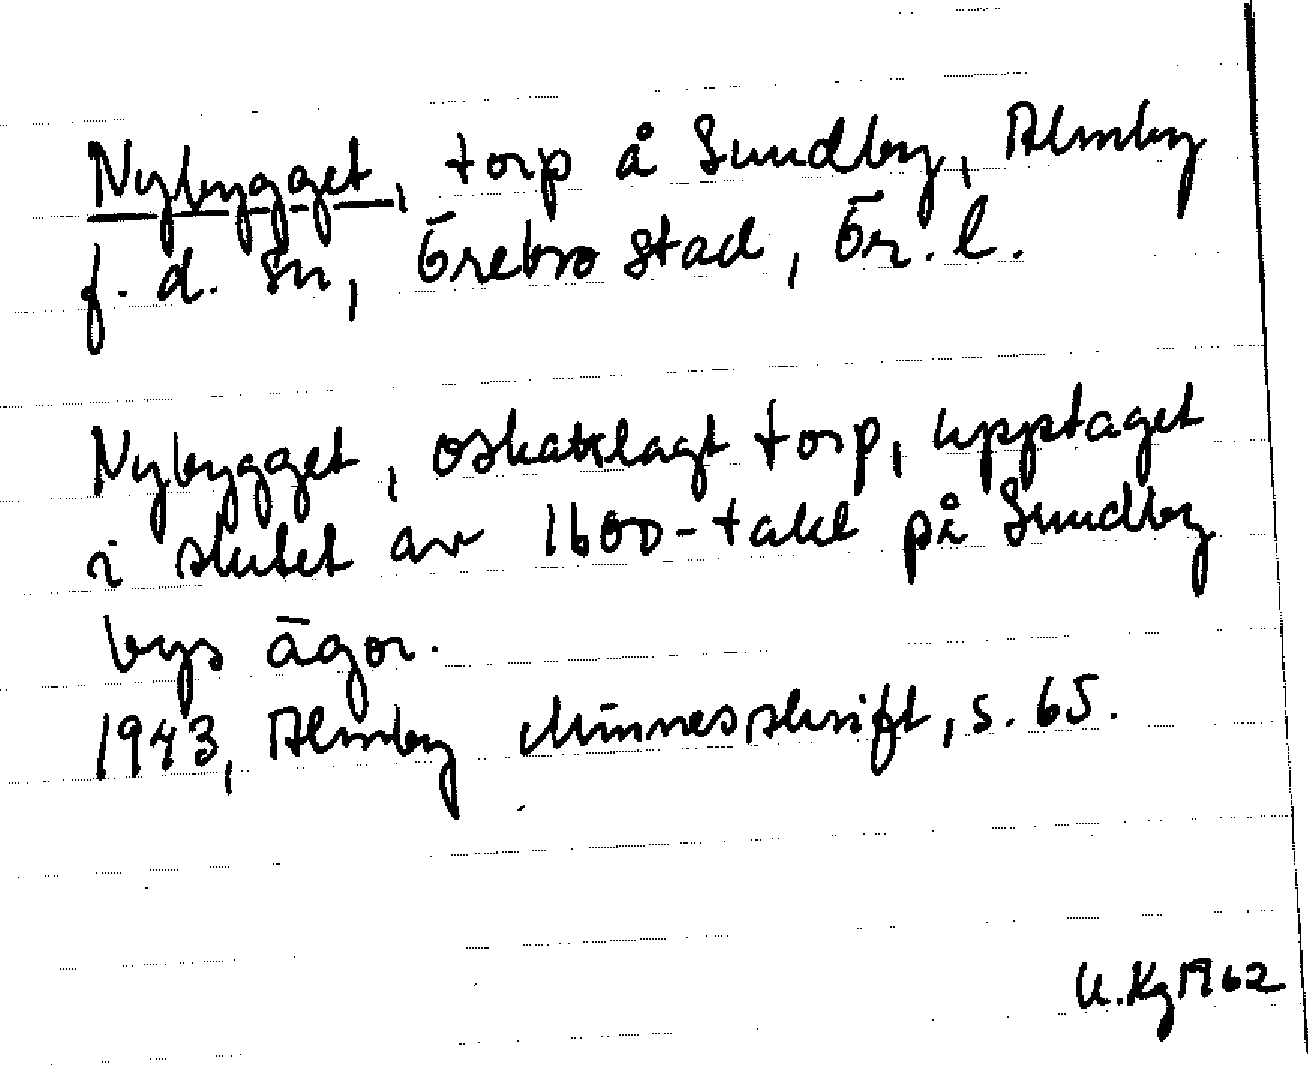 Nybygget, torp å Sundby, Almby
f. d. sn, Örebro stad, Ör. l.
Nybygget, oskattlagt torp, upptaget
i slutet av 1600-talet på Sundby
bys ägor.
1943, Almby Minnesskrift, s. 65.
K.Kg 1962